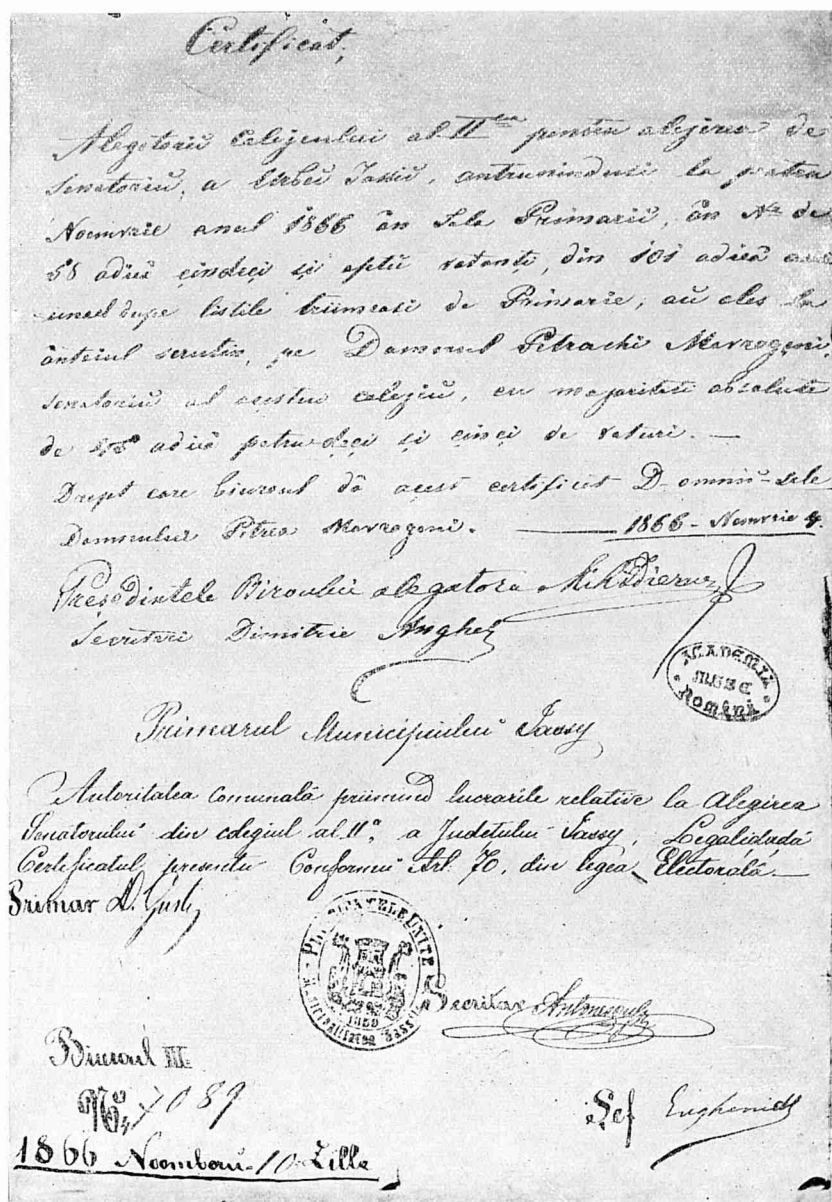 Certificat,
Alegetorii Colegiului al II<sup>lea</sup> pentru alegirea de
senatoriu, a Urbei Iassii, antrunindusi la patru
Noemvrie anul 1866 ân Sala Primarii, ân N<sup>r</sup> de
58 adică cindeci și optu votanți, din 101 adică
unul dupe listile trimeasi de Primarie, au ales la
ânteiul scrutin, pe Domnul Petrachi Mavrogeni,
senatoriu al acestui colegiu, cu majoritati absolute
de 45 adică patru-deci și cinci de voturi. —
Drept care biuroul dă acest certificat D-omnii-sale
Domnului Petrea Mavrogeni. — 1866 - Noemvrie 4.
Președintele Biroului alegatoru
Secretari Dimitrie Anghel
ACADEMIA
ROMÂNĂ
Primarul Municipiului Jassy
Autoritatea Comunală priimind lucrarile relative la Alegirea
Senatorului din colegiul al II<sup>a</sup>, a Judetului Jassy, Legalidadă
Certificatul presentu Conformu Art. 70, din legea Electorală. —
Primar D. Gusti
PRINCIPATELE UNITE
Municipalitatea Iassii
Secritar
Biuroul III
No. 7089
Șef
1866 Noembrii 10 Zille